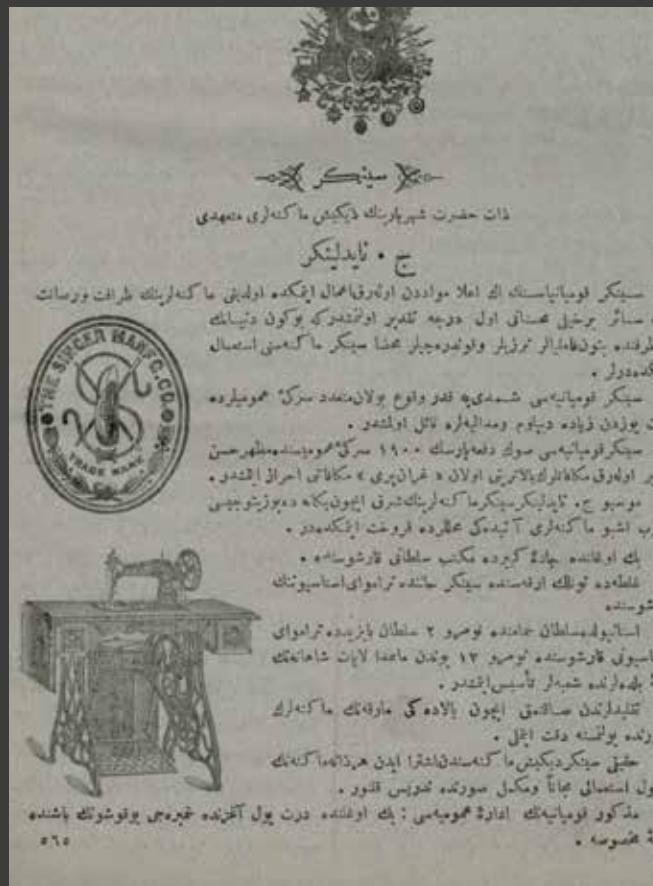 سینكر
ذات حضرت شهریارینك دیكیش ماكنه‌لری متعهدی
ج . نایدلینكر
سینكر قومپانیاسنك اك اعلا موادdن اوله‌رق اعمال ایتمكده اولدیغی ماكنه‌لرینك ظرافت ورصانت
سائر برخیلی محسناتی اول درجه تقدیر اولنمشدركه بوكون دنیانك
طرفنده بتون فامیلیالر ترزیلر وقوندره‌جیلر محضا سینكر ماكنه‌سنی استعمال
كده‌درلر .
سینكر قومپانیه‌سی شمدی‌یه قدر وقوع بولان متعدد سركی عمومیلرده
یوزدن زیاده دیپلوم ومدالیه‌لره نائل اولمشدر .
سینكر قومپانیه‌سی صوك دفعه پارسك ١٩٠٠ سركی عمومیسنده مظهر حسن
اوله‌رق مكافاتلرك بالاترینی اولان « غران‌پری » مكافاتنی احراز ایتمشدر .
موسیو ج. نایدلینكر سینكر ماكنه‌لرینك شرق ایچون یكانه ده‌پوزیتوجیسی
اشبو ماكنه‌لری آتیده‌كی محللرده فروخت ایتمكده‌در .
بك اوغلنده جادهٔ كبیرده مكتب سلطانی قارشوسنده .
غلطه‌ده تونل اورته‌سنده سینكر خاننده تراموای استاسیوننك
شوسنده
استانبولده سلطان حمامنده نومرو ٢ سلطان بایزیدده تراموای
تاسیونی قارشوسنده نومرو ١٣ بوندن ماعدا ولایات شاهانه‌نك
بلده‌لرنده شعبه‌لر تأسیس ایتمشدر .
تقلیدلرندن صاقنمق ایچون بالاده‌كی مارقه‌نك ماكنه‌لرك
اورزنده بولنمسنه دقت ایتملی .
حقیقی سینكر دیكیش ماكنه‌سندن اشترا ایدن هر ذاته ماكنه‌نك
اصول استعمالی مجاناً ومكمل صورتده تدریس قلنور .
مذكور قومپانیه‌نك ادارهٔ عمومیه‌سی : بك اوغلنده درت یول آغزنده خمبره‌جی یوقوشونك باشنده
مخصوصه .
٥٦٥
THE SINGER MANFG. CO.
TRADE MARK